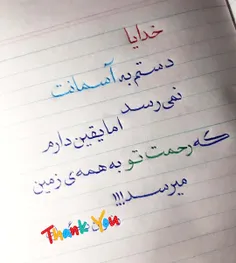 خدایا
دستم به آسمانت
نمی رسد
اما یقین دارم
که رحمت تو به همه ی زمین
میرسد!!!
Thank You